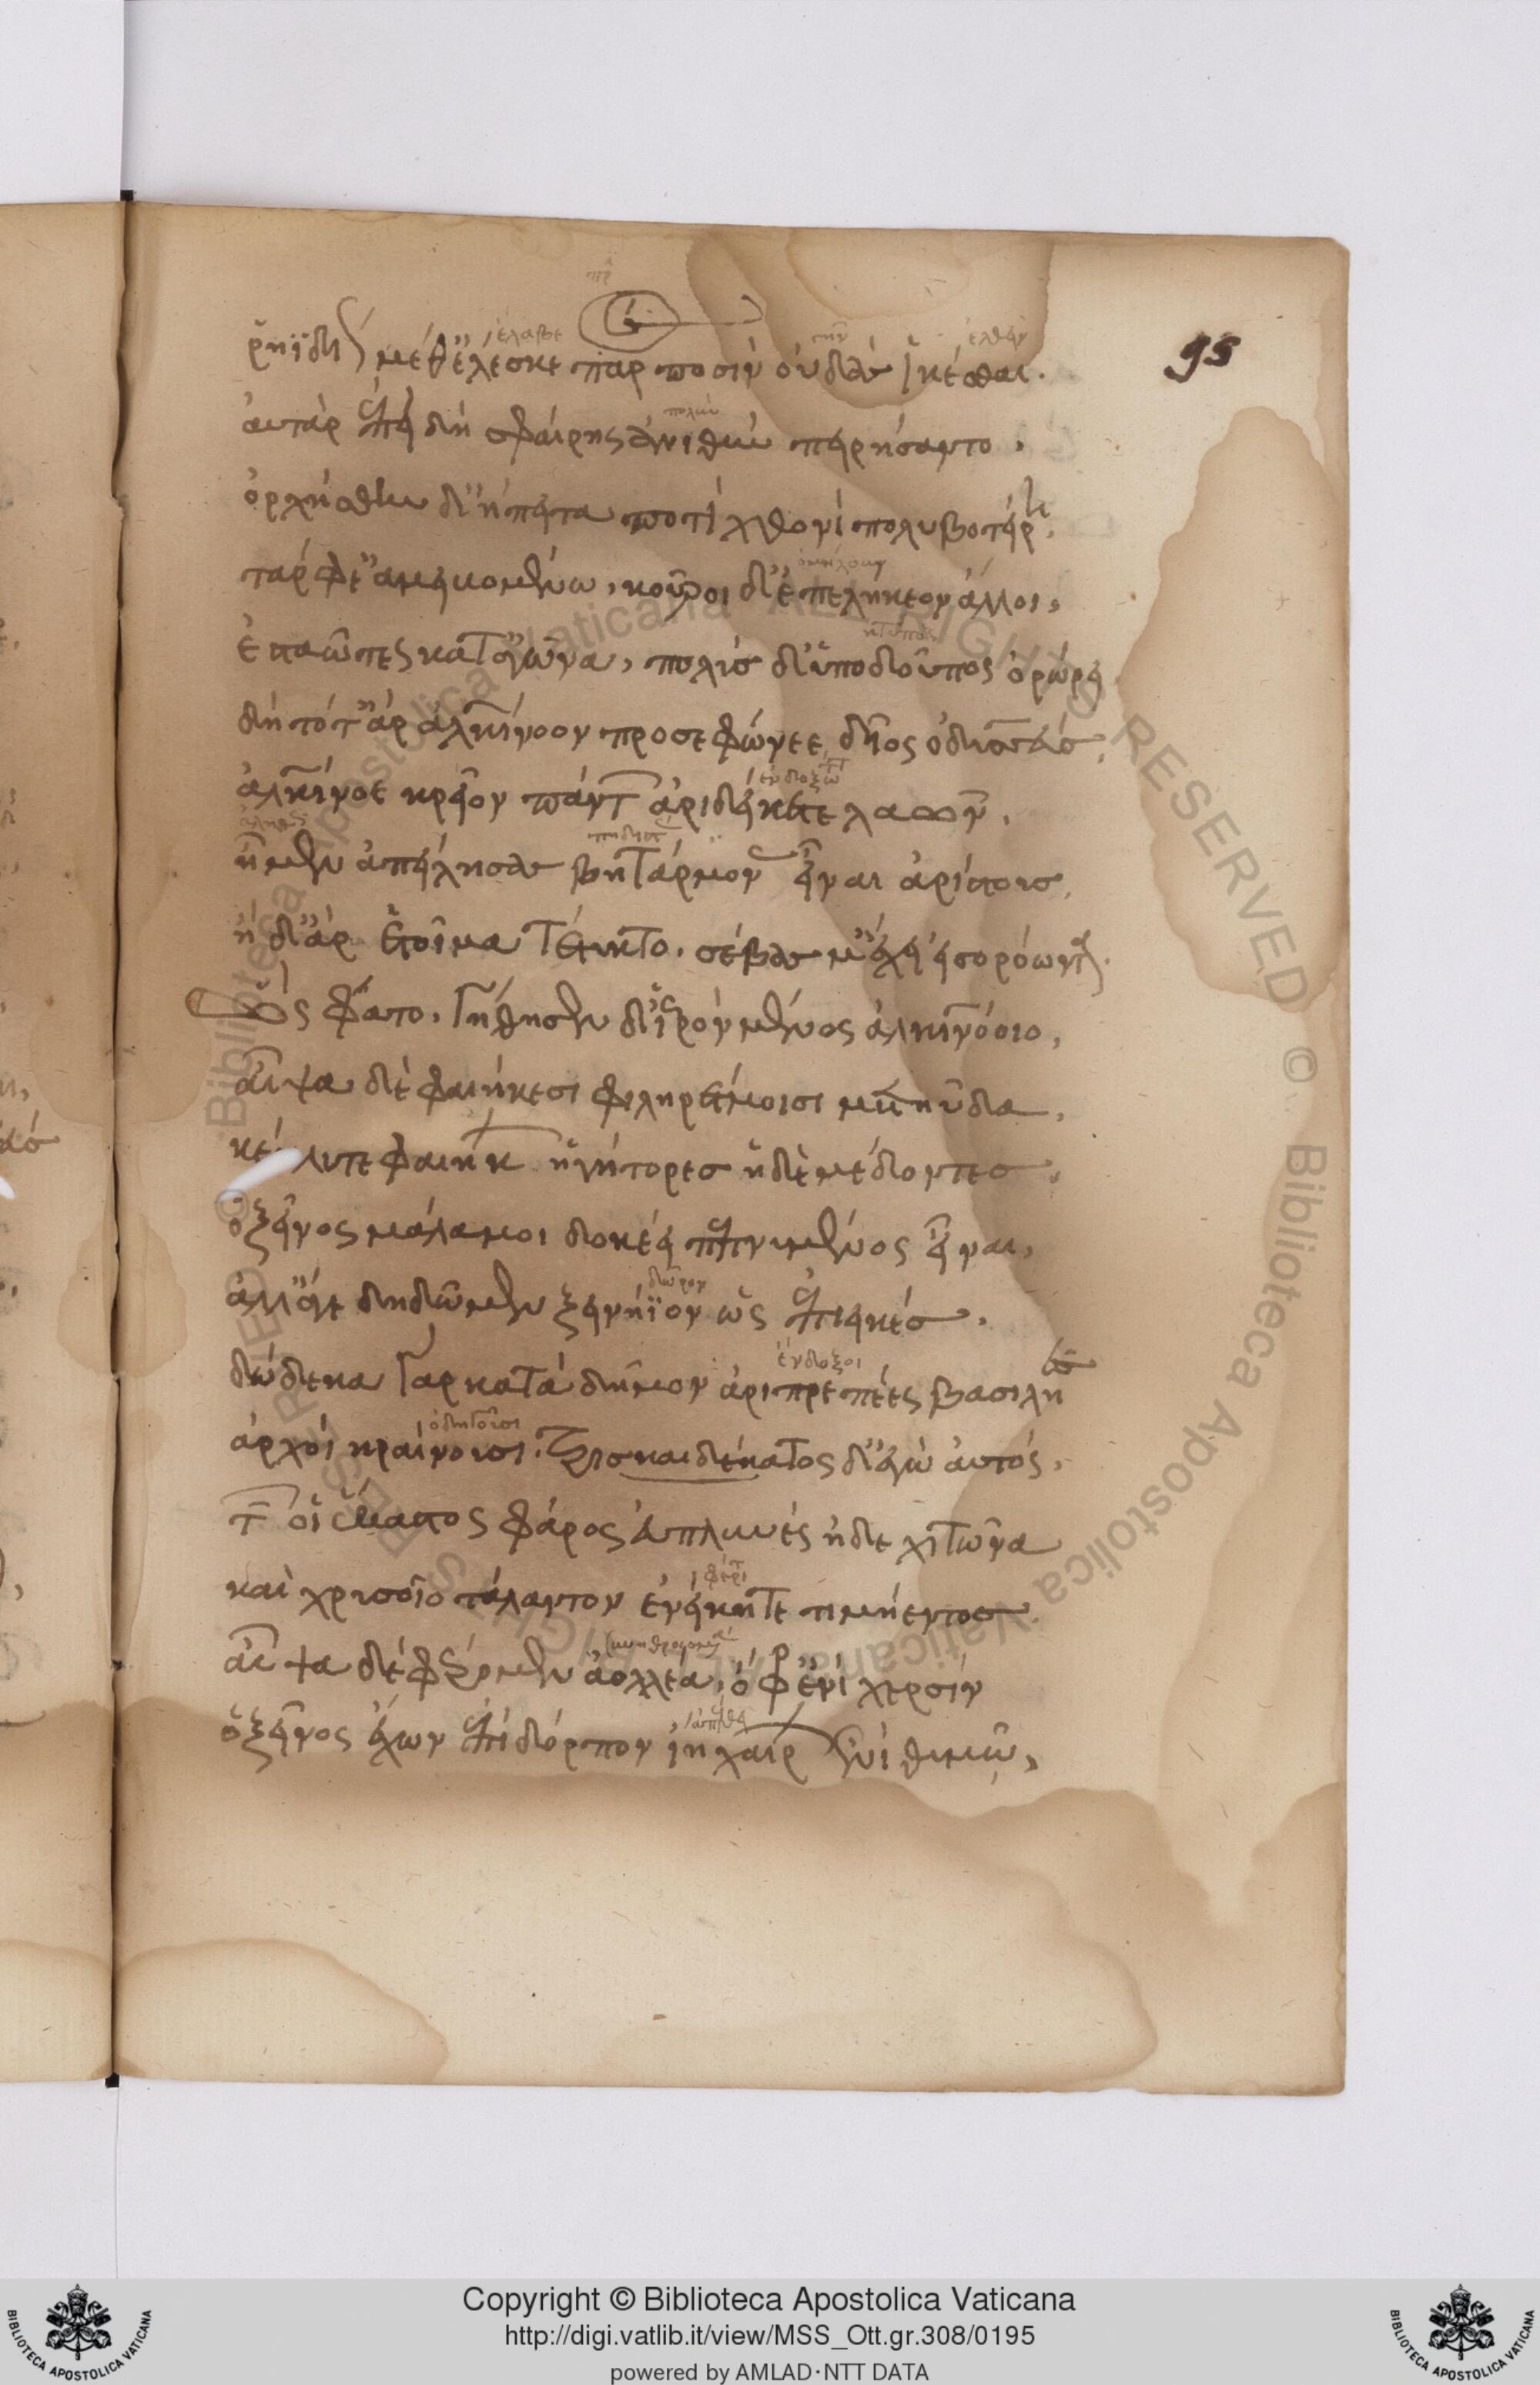 95
ῥηϊδίως μεθέλεσκε πάρ ποσὶν οὖδας ἱκέσθαι.
αὐτὰρ ἐπεὶ δὴ σφαίρης ἀν' ἰθὺν πειρήσαντο,
ὀρχήσθην δ' ἤπειτα ποτὶ χθονὶ πολυβοτείρῃ.
ταρφέ' ἀμειβομένω, κοῦροι δ' ἐπελήκεον ἄλλοι,
ἑσταῶτες κατ' ἀγῶνα, πολὺς δ' ὑπὸ δοῦπος ὀρώρει
δὴ τότ' ἄρ ἀλκίνοον προσεφώνεε δῖος ὀδυσσεύς,
ἔνδοξε
ἀλκίνοε κρεῖον πάντων ἀριδείκετε λαῶν,
ἦ μὲν ἀπείλησας βητάρμονας εἶναι ἀρίστους,
ἠδ' ἄρ ἕτοιμα τέτυκτο. σέβας μ' ἔχει εἰσορόωντα.
Ὣς φάτο. γήθησεν δ' ἱερὸν μένος ἀλκινόοιο,
αἶψα δὲ φαιήκεσι φιληρέτμοισι μετηύδα,
κέκλυτε φαιήκων ἡγήτορες ἠδὲ μέδοντες,
ὁ ξεῖνος μάλα μοι δοκέει πεπνυμένος εἶναι,
δῶρον
ἀλλ' ἄγε δὴ δῶμεν ξεινήϊον ὡς ἐπιεικές.
ἔνδοξοι
δώδεκα γὰρ κατὰ δῆμον ἀριπρεπέες βασιλῆες
ἀρχοὶ κραίνουσι. τρισκαιδέκατος δ' ἐγὼ αὐτός.
τῶν οἱ ἕκαστος φάρος ἐϋπλυνές ἠδὲ χιτῶνα
καὶ χρυσοῖο τάλαντον ἐνείκατε τιμήεντος
αἶψα δὲ φέρωμεν ἀολλέα, ὄφρ' ἐνὶ χερσὶν
ὁ ξεῖνος ἔχων ἐπὶ δόρπον ἴῃ χαίρων ἐνὶ θυμῷ,
© Biblioteca Apostolica Vaticana ALL RIGHTS RESERVED
© Biblioteca Apostolica Vaticana ALL RIGHTS RESERVED
Copyright © Biblioteca Apostolica Vaticana
http://digi.vatlib.it/view/MSS_Ott.gr.308/0195
powered by AMLAD·NTT DATA
BIBLIOTECA APOSTOLICA VATICANA
BIBLIOTECA APOSTOLICA VATICANA